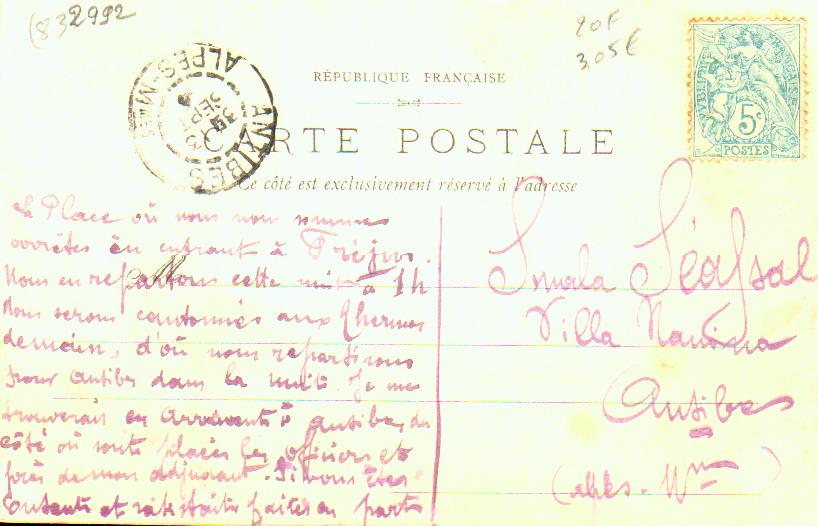 (832992
20F
3,05€
RÉPUBLIQUE FRANÇAISE
CARTE POSTALE
Ce côté est exclusivement réservé à l'adresse
ANTIBES
ALPES-Mmes
5c
POSTES
La Place où nous nous sommes
arrêtés en entrant à Fréjus.
Nous en repartons cette nuit à 1h
Nous serons cantonnés aux
demain, d'où nous repartirons
pour Antibes dans la nuit. Je me
trouverais en à Antibes du
côté où sont placés les officiers et
près de mon adjudant. Si vous êtes
contents et satisfaits faites en part
Villa
Antibes
(Alpes-Mmes)